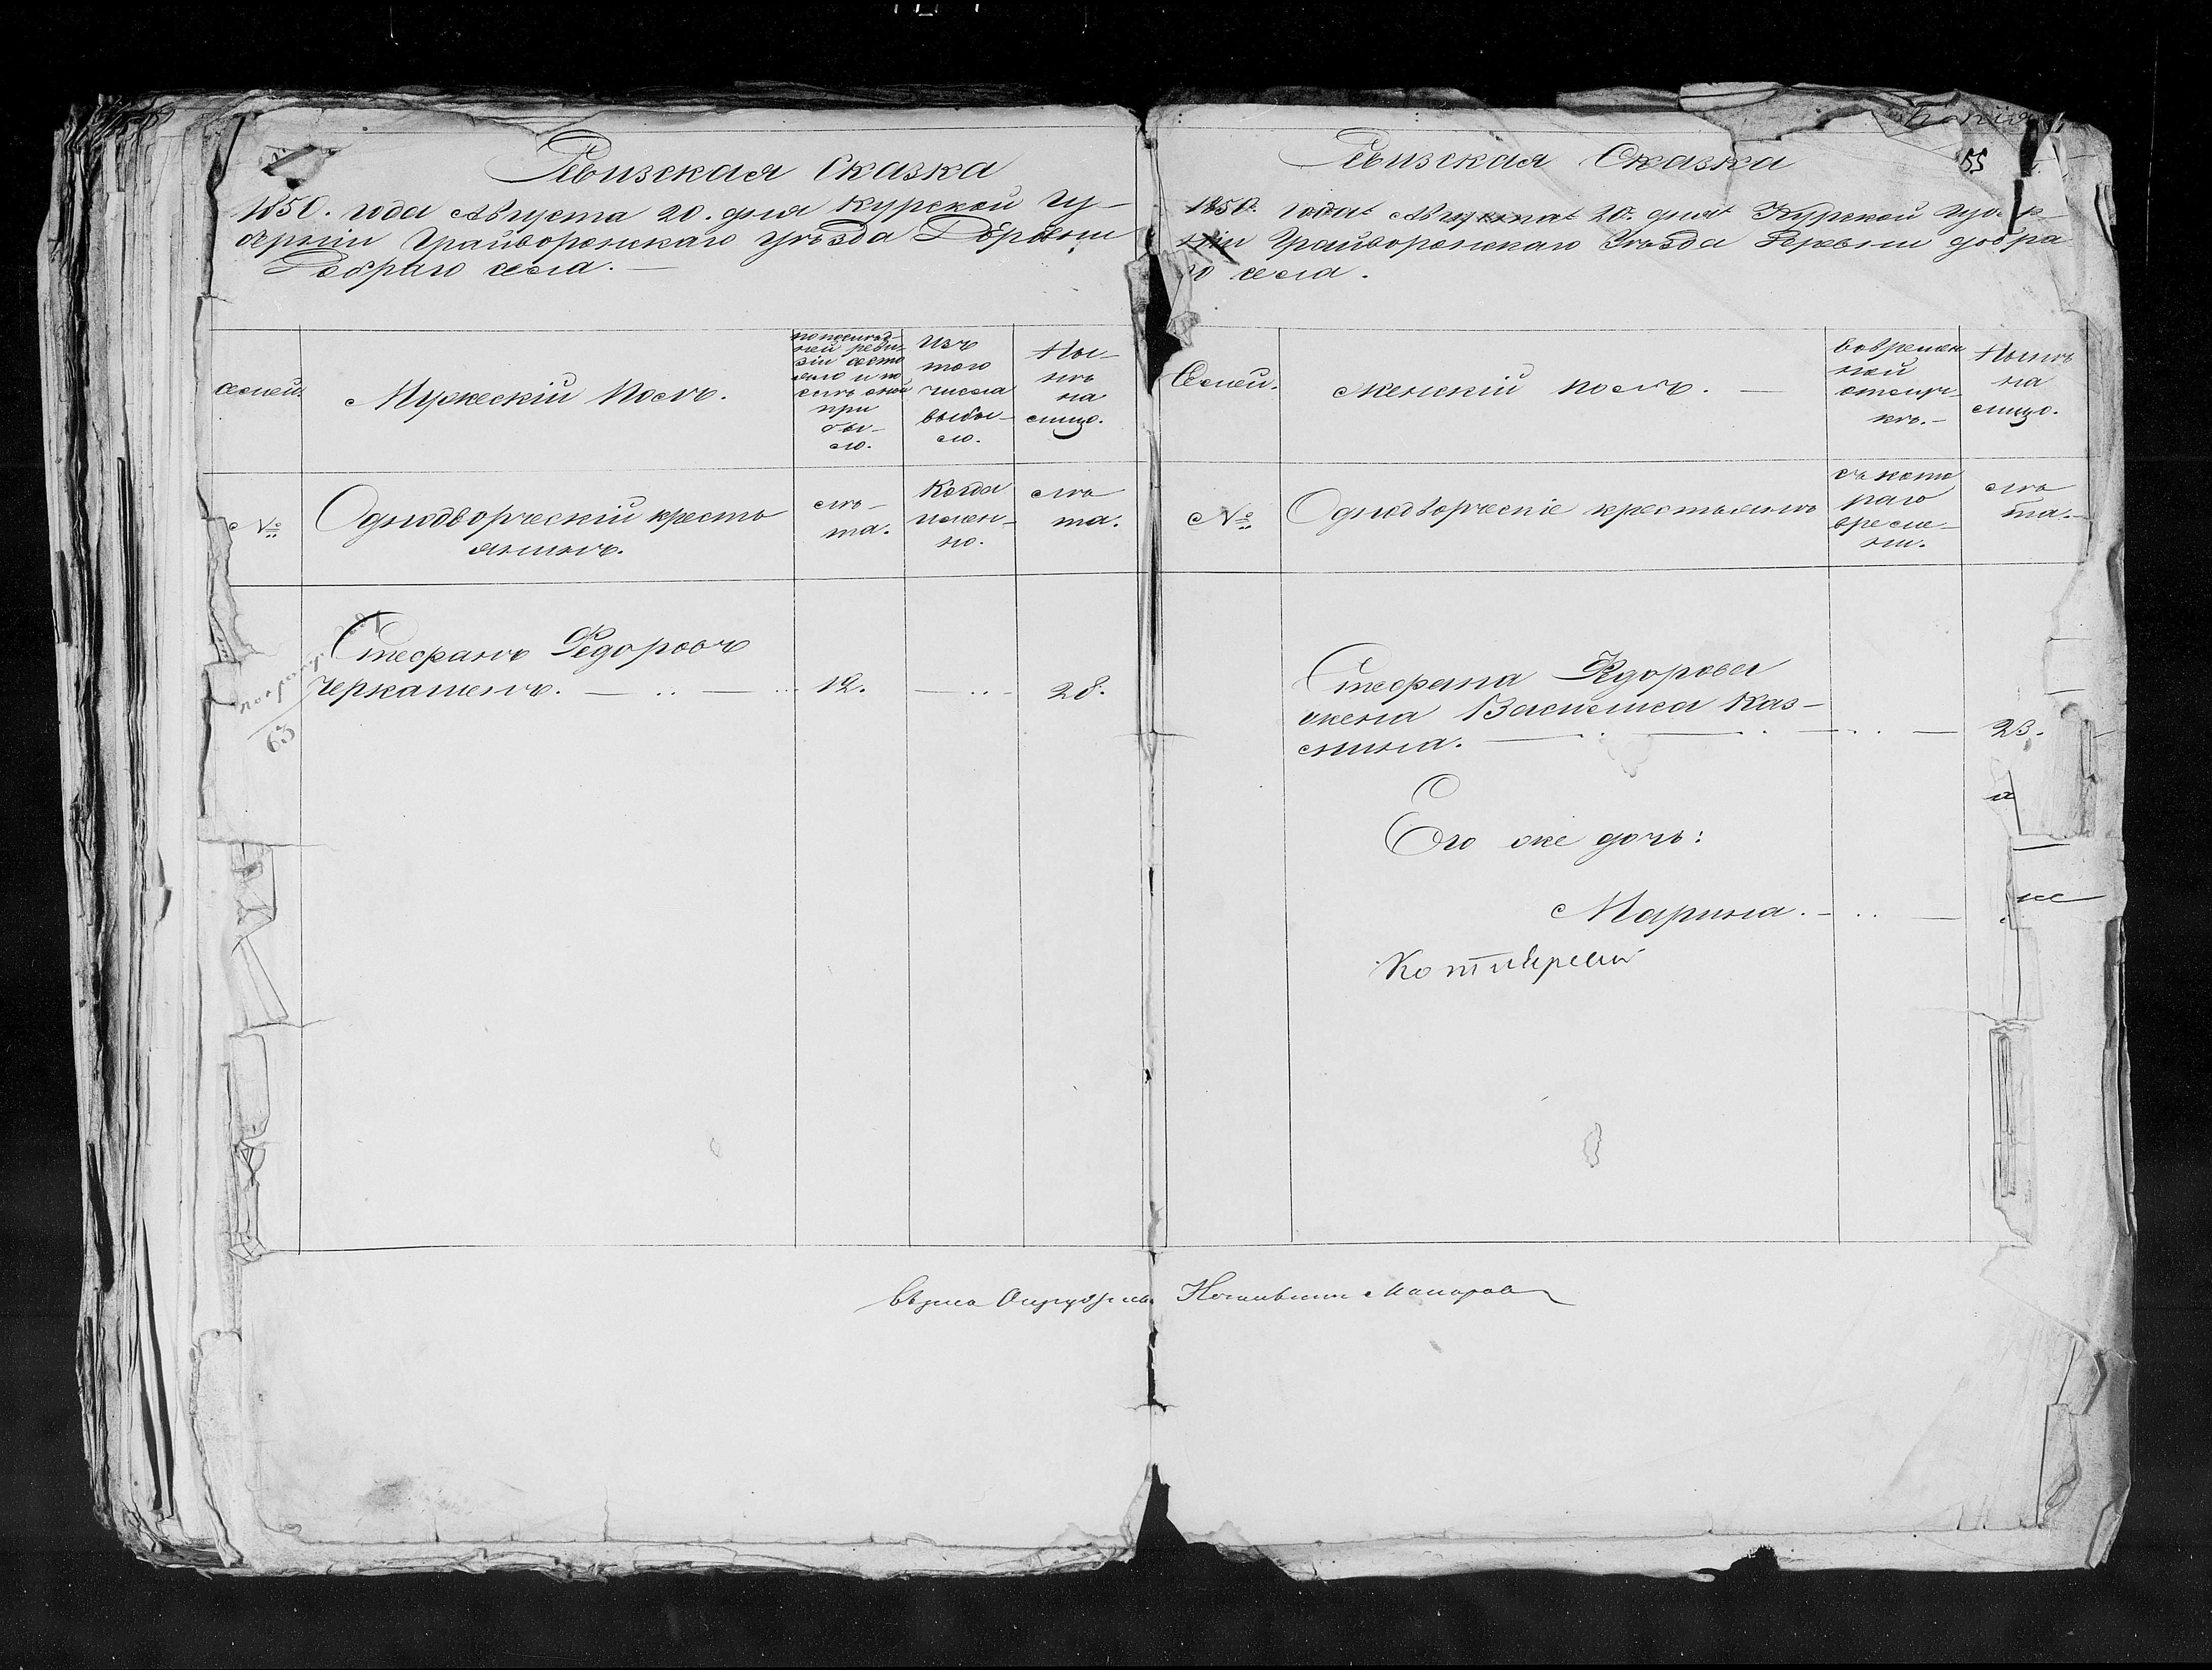 Ревизская Сказка
1850. года Августа 20. дня Курской Гу-
бернiи Грайворонскаго уѣзда Деревни
Добраго села.
Семей.
Мужескiй полъ.
По послѣд-
ней реви-
зiи состо
яло и по
слѣ оной
при
бы-
ло.
Изъ
того
числа
выбы-
ло.
Ны-
нѣ
на
лицо.
№
Однодворческiй кресть
янинъ.
лѣ-
та.
Когда
имен-
но.
лѣ
та.
63
Стефанъ Федоровъ
Черкашенъ.
12.
28.
Копiя
55
Ревизская Сказка
1850. года Августа 20. дня Курской Губер-
нiи Грайворонскаго Уѣзда Деревни добра
го села.
Семей.
Женскiй полъ.
Во времен
ной
отлуч-
кѣ.
Нынѣ
на
лицо.
№
Однодворческiе крестьянинъ
съ кото
раго
време-
ни.
лѣ
та.
Стефана Федорова
жена Василиса Каз-
мина.
23.
Его же дочь:
Марина.
Вѣрно Окружный Начальникъ